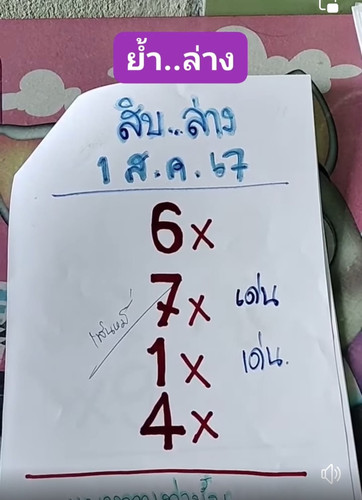 ย้ำ..ล่าง
สิบ...ล่าง
1 ส.ค. 67
6x
7x เด่น
1x เด่น.
4x